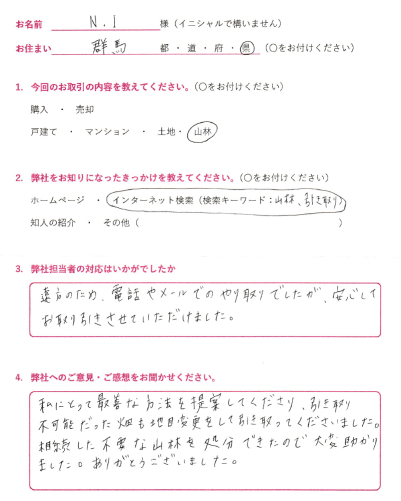 お名前 N.I 様（イニシャルで構いません）
お住まい 群馬 都・道・府・県（〇をお付けください）
1. 今回のお取引の内容を教えてください。（〇をお付けください）
購入 ・ 売却
戸建て ・ マンション ・ 土地・ 山林
2. 弊社をお知りになったきっかけを教えてください。（〇をお付けください）
ホームページ ・ インターネット検索（検索キーワード：山林、引き取り）
知人の紹介 ・ その他（ ）
3. 弊社担当者の対応はいかがでしたか
遠方のため、電話やメールでのやり取りでしたが、安心して
お取り引きさせていただけました。
4. 弊社へのご意見・ご感想をお聞かせください。
私にとって最善な方法を提案してくださり、引き取り
不可能だった畑も地目変更をして引き取ってくださいました。
相続した不要な山林を処分できたので大変助かり
ました。ありがとうございました。